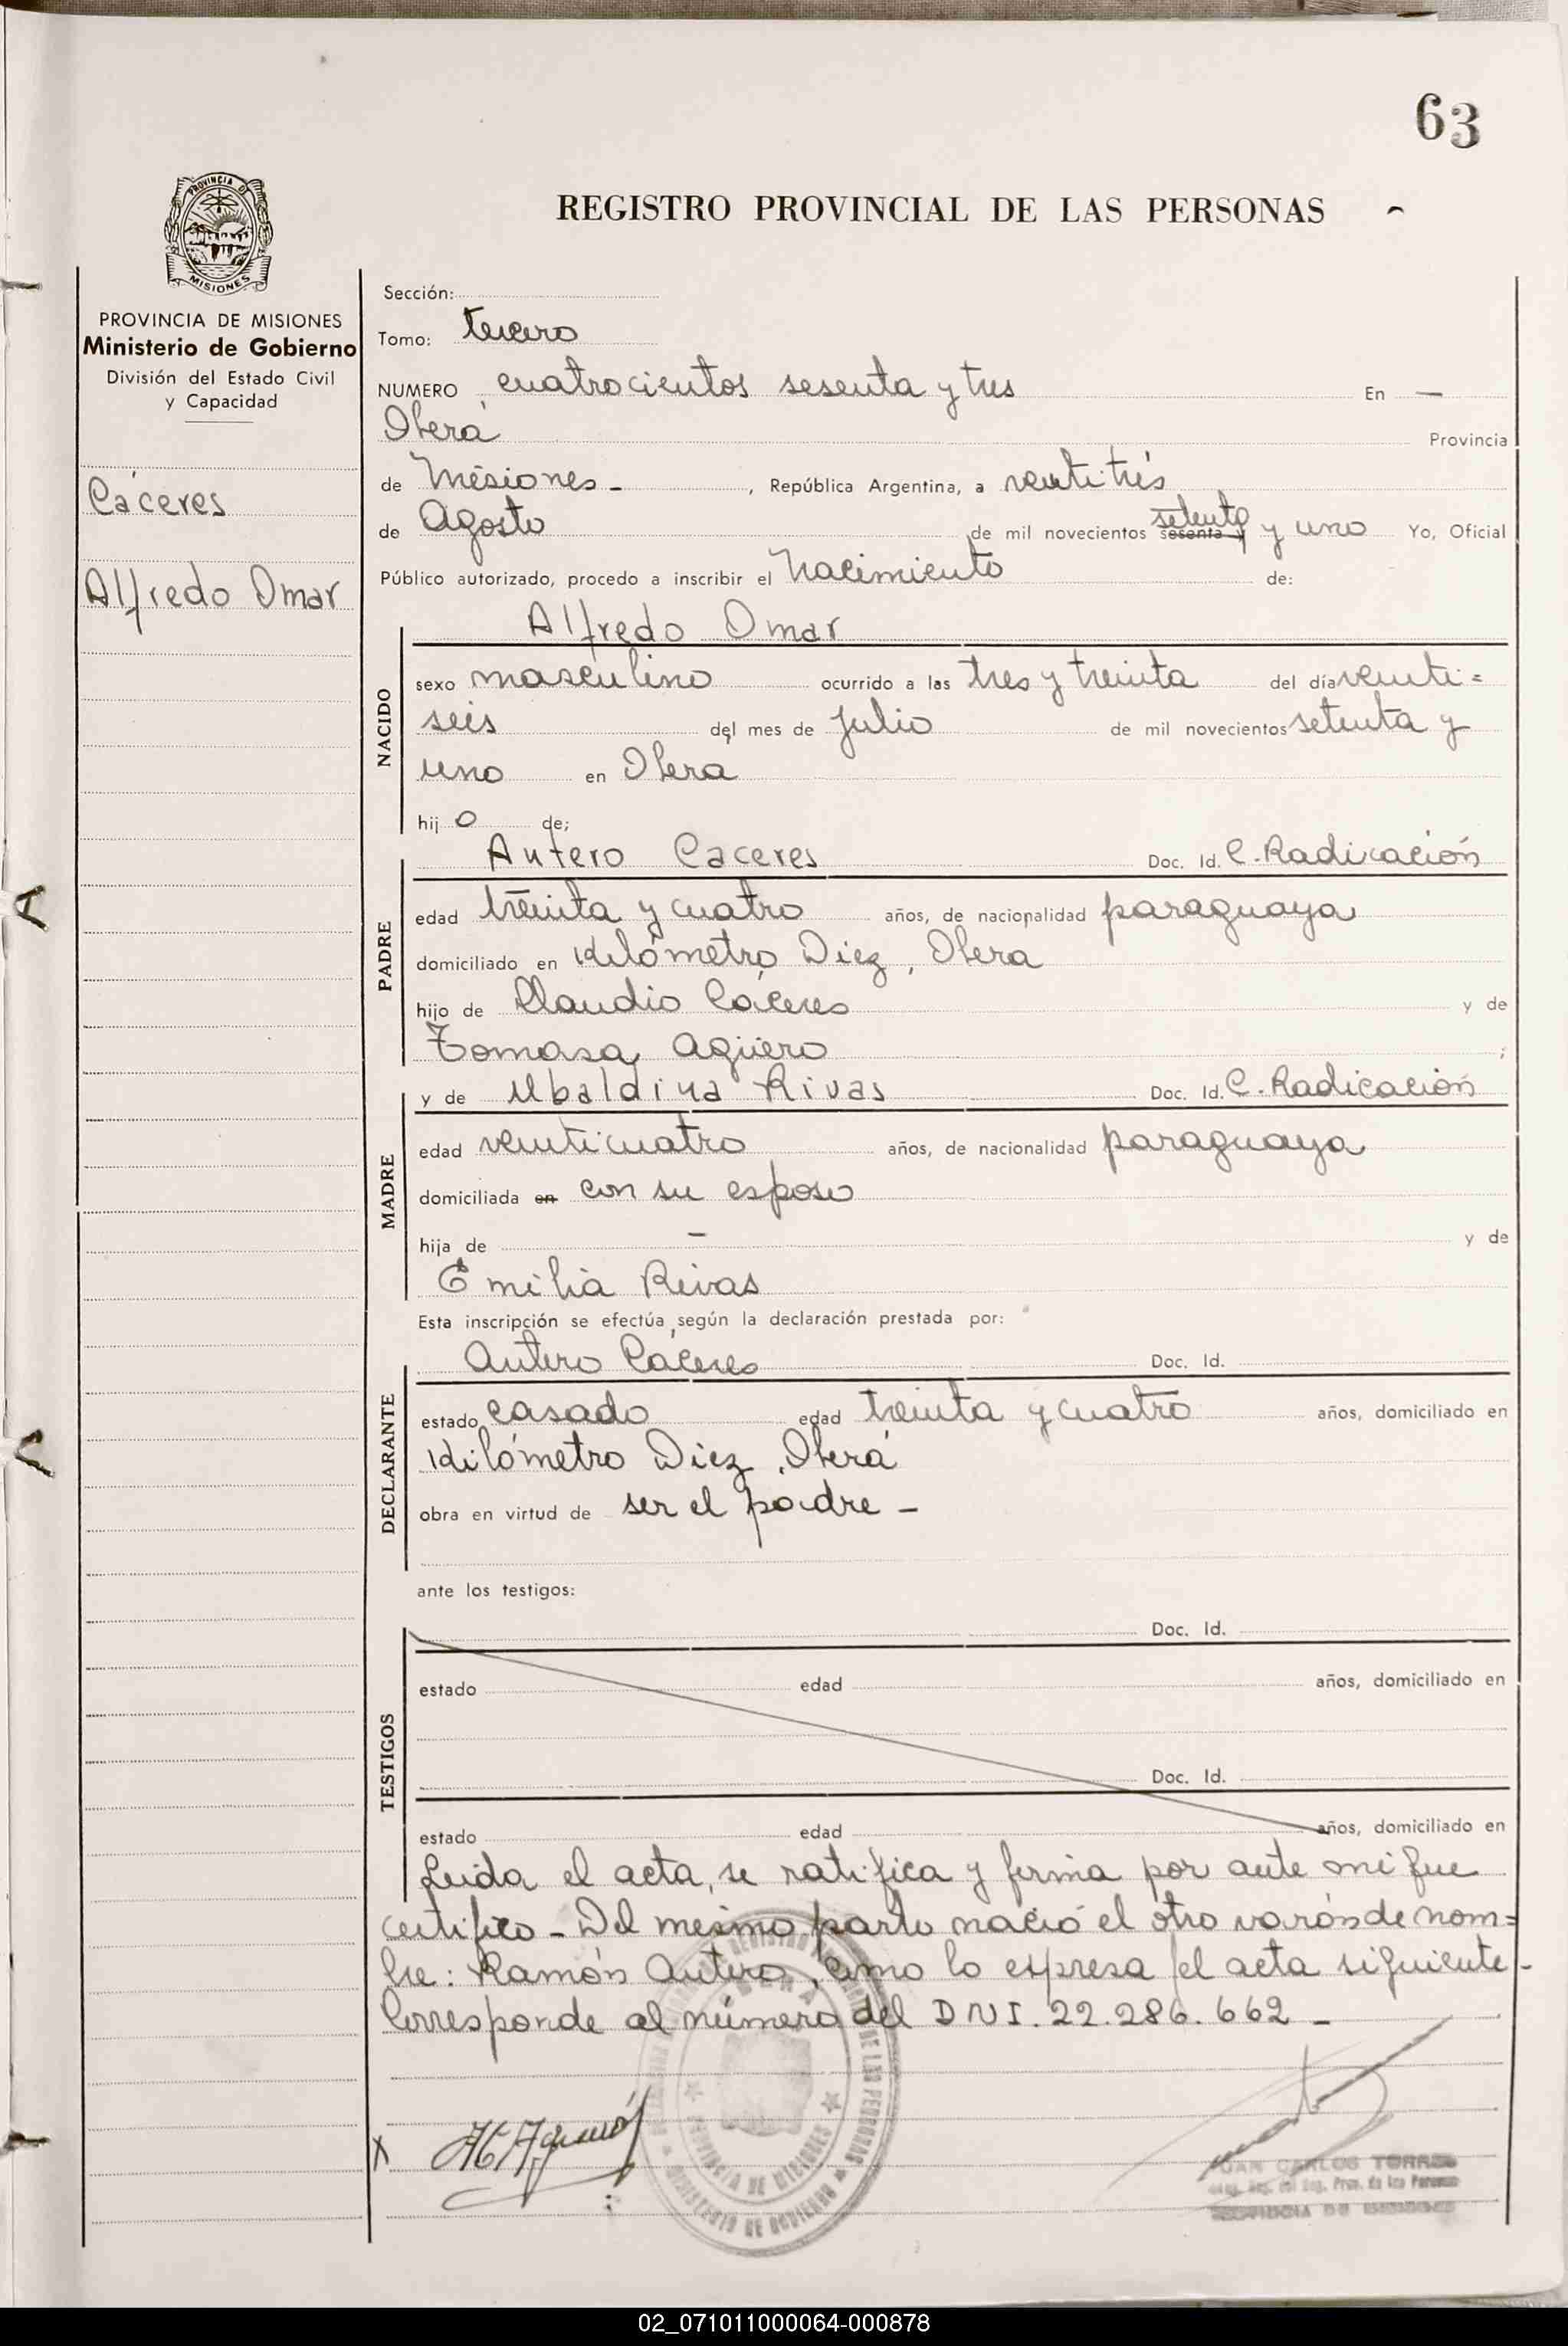 63
PROVINCIA DE
MISIONES
REGISTRO PROVINCIAL DE LAS PERSONAS
PROVINCIA DE MISIONES
Ministerio de Gobierno
División del Estado Civil
y Capacidad
Cáceres
Alfredo Omar
Sección:
Tomo: tercero
NUMERO cuatrocientos sesenta y tres En —
Oberá Provincia
de Misiones - , República Argentina, a veintitrés
de Agosto de mil novecientos sesenta y setenta y uno Yo, Oficial
Público autorizado, procedo a inscribir el Nacimiento de:
Alfredo Omar
NACIDO
sexo masculino ocurrido a las tres y treinta del día veinti=
seis del mes de Julio de mil novecientos setenta y
uno en Obera
hij o de;
Antero Caceres Doc. Id. C. Radicación
PADRE
edad treinta y cuatro años, de nacionalidad paraguaya
domiciliado en Kilómetro Diez, Obera
hijo de Claudio Cáceres y de
Tomasa Agüero ;
y de Ubaldina Rivas Doc. Id. C. Radicación
MADRE
edad veinticuatro años, de nacionalidad paraguaya
domiciliada en con su esposo
hija de — y de
Emilia Rivas
Esta inscripción se efectúa según la declaración prestada por:
Antero Cáceres Doc. Id.
DECLARANTE
estado casado edad treinta y cuatro años, domiciliado en
Kilómetro Diez, Oberá
obra en virtud de ser el padre -
ante los testigos:
Doc. Id.
TESTIGOS
estado edad años, domiciliado en
Doc. Id.
estado edad años, domiciliado en
Leida el acta, se ratifica y firma por ante mi que
certifico - Del mismo parto nació el otro varón de nom=
bre: Ramón Antero, como lo expresa el acta siguiente -
Corresponde al número del DNI. 22.286.662 -
X
OBERA
PROVINCIA DE MISIONES
MINISTERIO DE GOBIERNO
JUAN CARLOS TORRES
Prov. de las Personas
PROVINCIA DE MISIONES
02_071011000064-000878